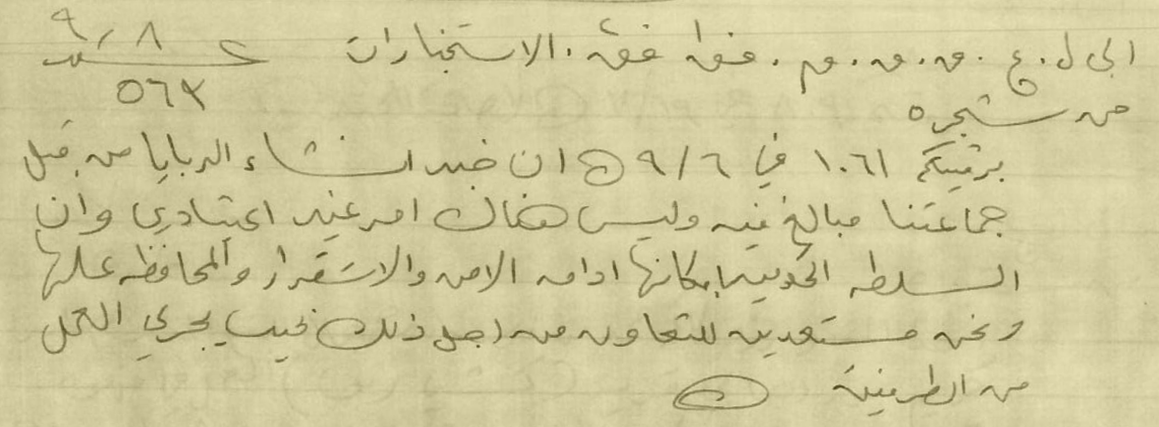 الى ل. ع. ق. ق. م. فوا فق. الاستخبارات ع ٩/٨
٥٦٣
من
برقيتكم ١٠٦١ في ٩/٦ ان خبر انشاء الربايا من قبل
جماعتنا مبالغ فيه وليس هناك امر غير اعتيادي وان
السلطه الحكوميه بامكانها ادامه الامن والاستقرار والمحافظه علها
ونحن مستعدين للتعاون من اجل ذلك يجري العمل
من الطرفين